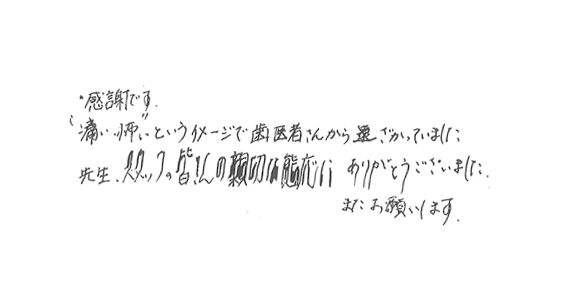 ・感謝です.
"痛い、怖い"というイメージで歯医者さんから遠ざかっていました
先生、スタッフの皆さんの親切な態応に ありがとうございました.
またお願いします.